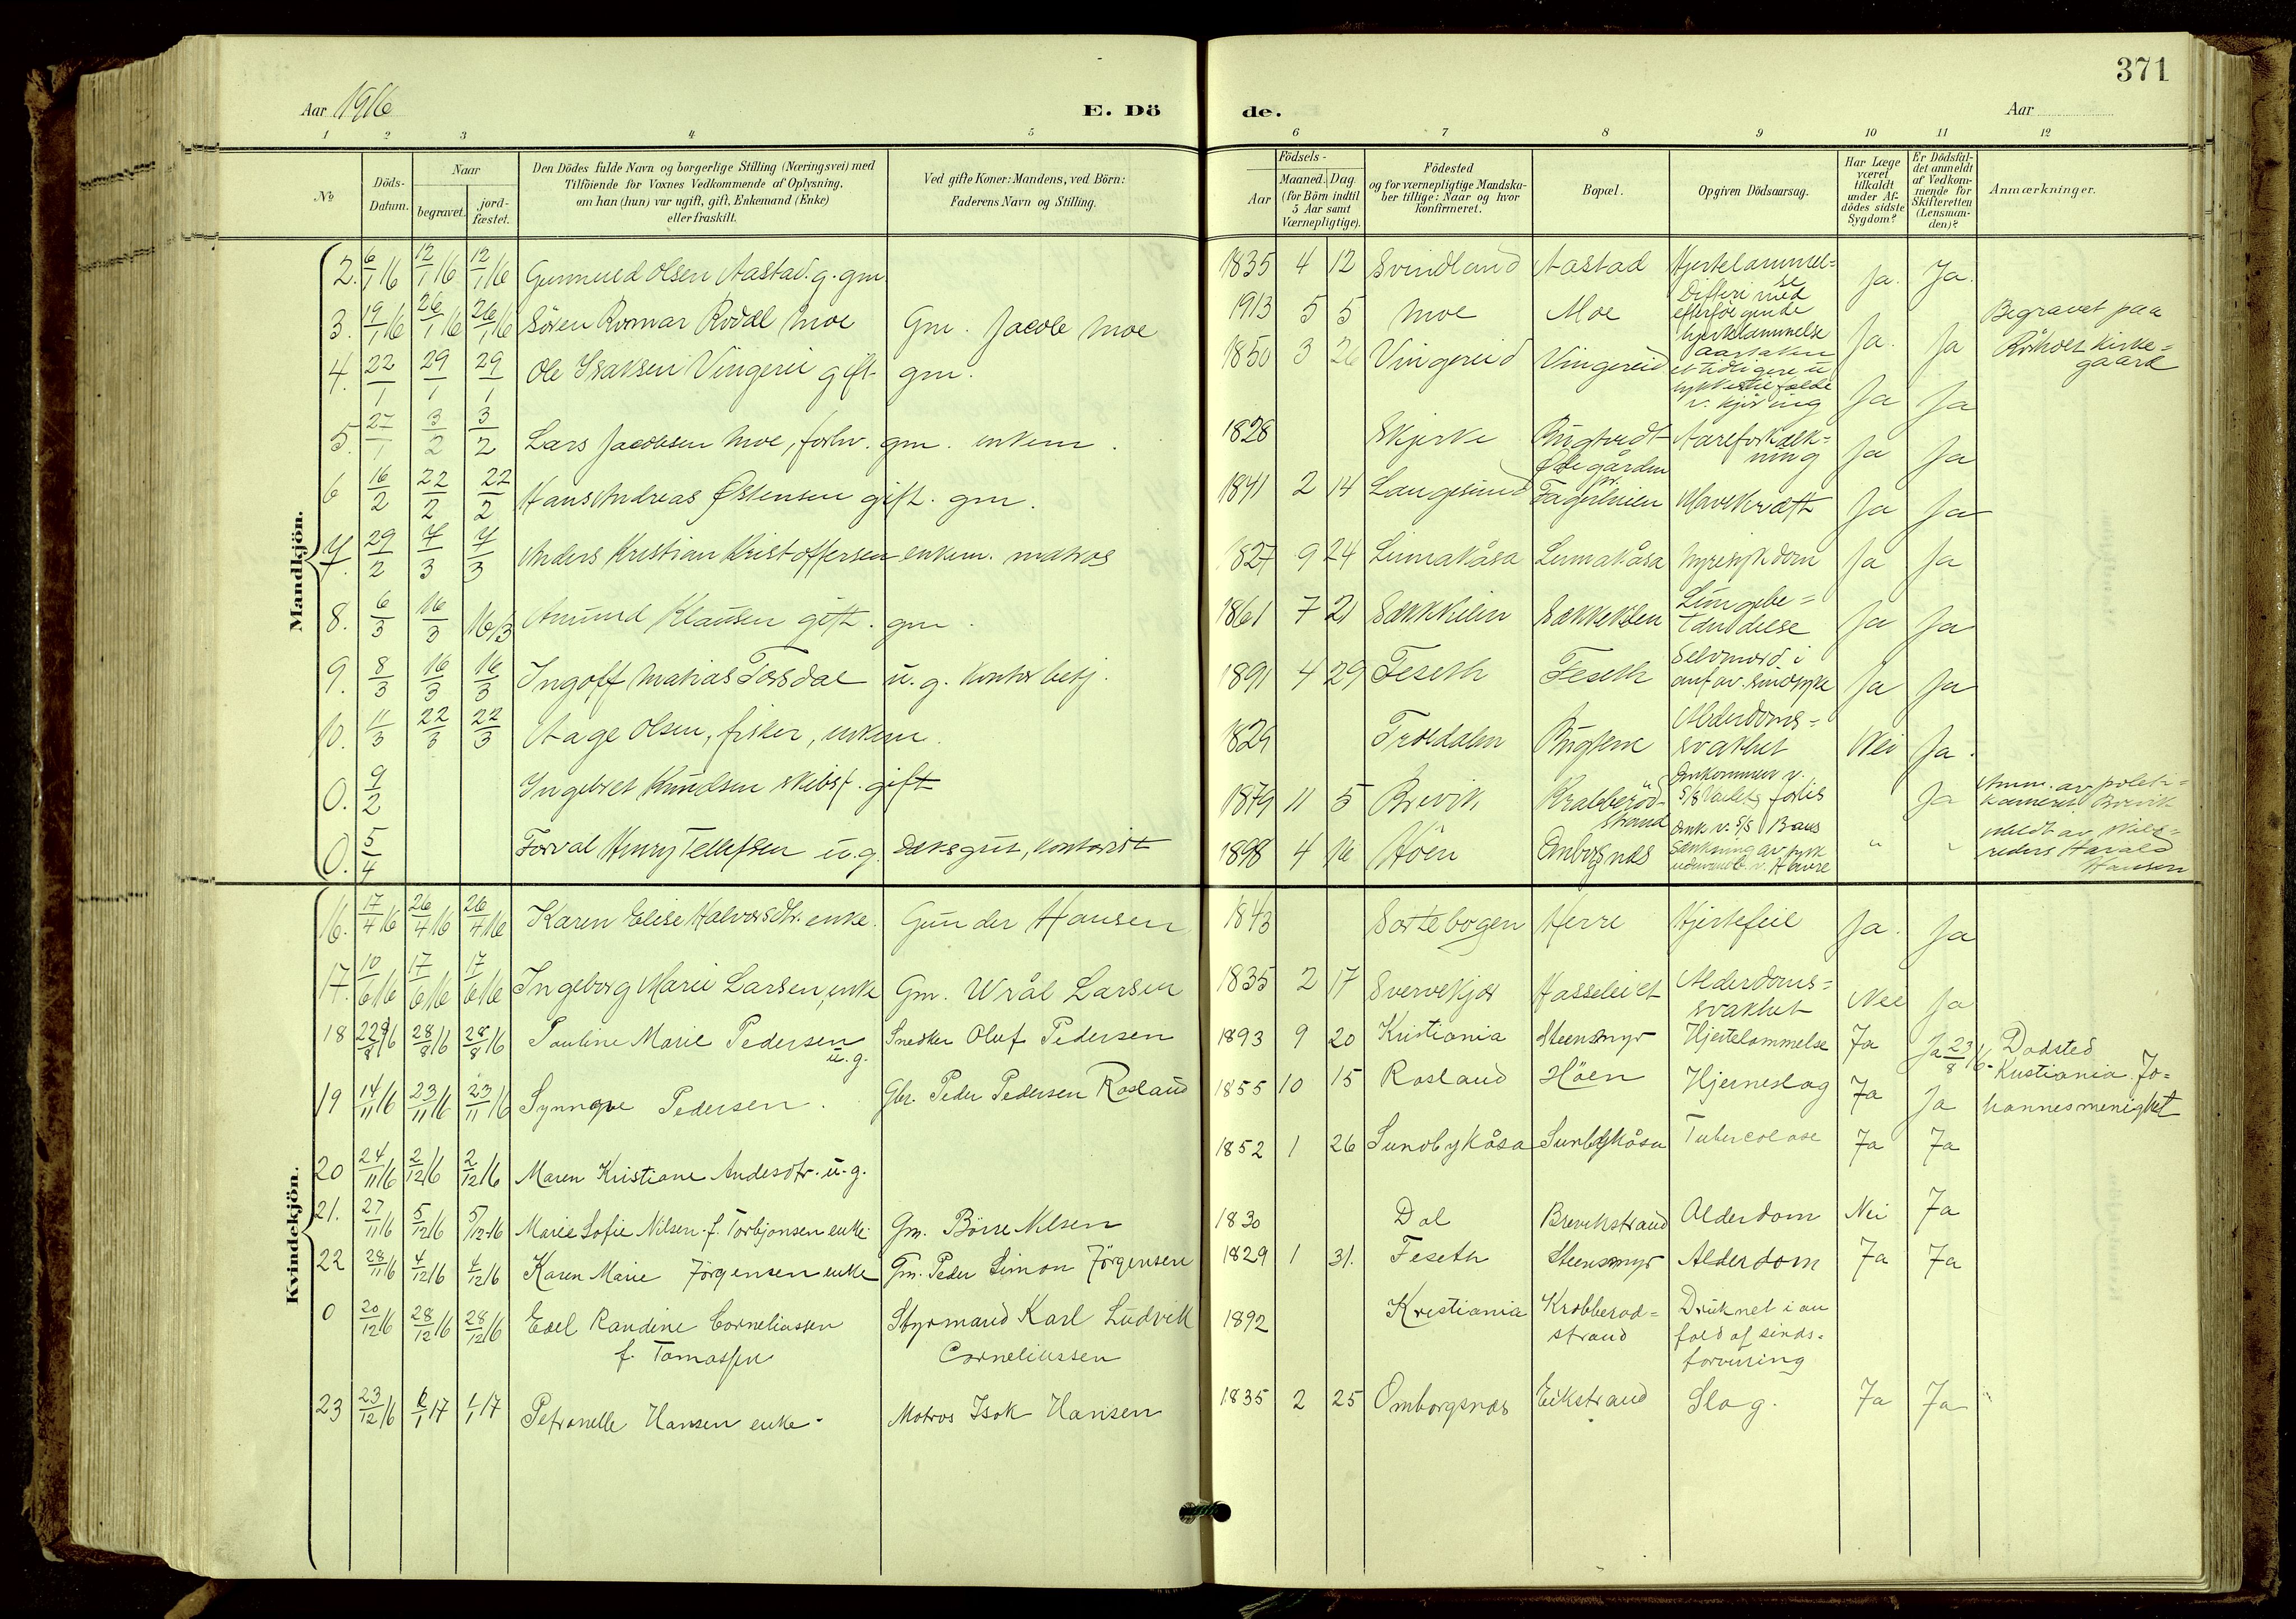 371
Aar 1916
E. Dö
de.
Aar
1 2 3 4 5 6 7 8 9 10 11 12
No
Döds-Datum.
Naar
begravet.
jord-fæstet.
Den Dödes fulde Navn og borgerlige Stilling (Næringsvei) med
Tilföiende for Voxnes Vedkommende af Oplysning,
om han (hun) var ugift, gift, Enkemand (Enke)
eller fraskilt.
Ved gifte Koner: Mandens, ved Börn:
Faderens Navn og Stilling.
Födsels-
Aar
Maaned. Dag
(for Börn indtil
5 Aar samt
Værnepligtige).
Födested
og for værnepligtige Mandska-
ber tillige: Naar og hvor
konfirmeret.
Bopæl.
Opgiven Dödsaarsag.
Har Læge
været
tilkaldt
under Af-
dödes sidste
Sygdom?
Er Dödsfal-
det anmeldt
af Vedkom-
mende for
Skifteretten
(Lensman-
den)?
Anmærkninger.
Mandkjön.
2. 6/1 16 12/1 16 12/1 16 Gunnuld Olsen Aastad. g. gm. 1835 4 12 Svindland Aastad Hjertelammel=
se Ja. Ja.
3. 19/1 16 26/1 16 26/1 16 Sören Romar Rodal Moe Gm. Jacob Moe 1913 5 5 Moe Moe Difteri med
efterfölgende
hjertelammelse Ja. Ja Begravet paa
Rörholt kirke=
gaard
4. 22/1 29/1 29/1 Ole Isaksen Vingerei gift gm. 1850 3 26 Vingereid Vingereid aarsaken
et tidligere u
lykkestilfælde
v. kjöring Ja Ja
5. 27/1 3/2 3/2 Lars Jacobsen Moe, forhv. gm. enkem. 1828 Skjerke Bugtvedt Aareforkalk=
ning Ja Ja
6 16/2 22/2 22/2 Hans Andreas Østensen gift. gm. 1841 2 14 Langesund Ødegården
pr.
Fagerheim Mavekræft Ja Ja
7. 29/2 7/3 7/3 Anders Kristian Kristoffersen enkem. matros 1827 9 24 Linnakåsa Linnakåsa Nyresykdom Ja Ja
8. 6/3 16/3 16/3 Amund Klausen gift. gm. 1861 7 21 Sækkekilen Sækkekilen Lungebe=
tændelse Ja Ja
9. 8/3 16/3 16/3 Ingolf Matias Tossdal u. g. Kontorbetj. 1891 4 29 Feseth Feseth Selvmord i
anf. av. sindsyke Ja Ja
10. 11/3 22/3 22/3 Aage Olsen, fisker, enkem. 1829 Trosdalen Bugtene Alderdoms=
svakhet Nei Ja.
0. 9/2 Ingebret Knudsen skibsf. gift 1879 11 5 Brevik Krabberöd-
strand Omkommen v.
S/S forlis Ja Anm. av politi=
kammeret Brevik
0. 5/4 Torval Henry Tellefsen u. g. dæksgut, kontorist 1898 4 16 Höen Omborsnes Omk v. S/S Baus
senkning av tysk
undervandsb. v. Havre " " meldt av skibs=
reders Harald
Hansen
Kvindekjön.
16. 17/4 16 26/4 16 26/4 16 Karen Elise Halvorsdtr. enke. Gunder Hansen 1843 Sortebogen Herre Hjertefeil Ja. Ja
17. 10/6 16 17/6 16 17/6 16 Ingeborg Marie Larsen, enke Gm. Wrål Larsen 1835 2 17 Svervekjær Hasseleiet Alderdoms=
svakhet Nei Ja
18 22/8 16 28/8 16 28/8 16 Pauline Marie Pedersen
u. g. Snedker Oluf Pedersen 1893 9 20 Kristiania Steensmyr Hjertelammelse Ja Ja 23/8 16 Dödsted
Kristiania Jo=
hannesmenighet
19 14/11 16 23/11 16 23/11 16 Synnøve Pedersen. Gbr. Peder Pedersen Rosland 1855 10 15 Rosland Höen Hjerneslag Ja Ja
20 24/11 16 2/12 16 2/12 16 Maren Kristiane Andersdtr. u. g. 1852 1 26 Sundbykåsa Sundbykåsa Tuberculose Ja Ja
21. 27/11 16 5/12 16 5/12 16 Marie Sofie Nilsen f. Torbjørnsen enke Gm. Börre Nilsen 1830 Dal Brevikstrand Alderdom Nei Ja
22 28/11 16 4/12 16 4/12 16 Karen Marie Jörgensen enke Gm. Peder Simon Jörgensen 1829 1 31. Feseth Steensmyr Alderdom Ja Ja
0 20/12 16 28/12 16 28/12 16 Edel Randine Corneliussen
f. Tomassen Styrmand Karl Ludvik
Corneliussen 1892 Kristiania Krabberöd=
strand Druknet i an
fald af sinds=
forvirring
23 23/12 16 6/1 17 6/1 17 Petronelle Hansen enke Matros Isak Hansen 1835 2 25 Omborgsnes Eikstrand Slag. Ja Ja